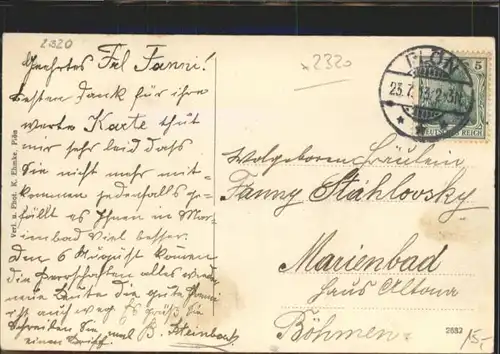 2320
Geehrtes Frl Fanni!
besten Dank für ihre
werte Karte thut
mir sehr leid daß
Sie nicht mehr mit-
kommen jedenfalls ge-
fällt es Ihnen in Mar-
imbad viel besser.
Den 6 August kommen
die Herrschaften alles wieder
neue Leute die gute
ist auch weg Es grüßt Sie
Schreiben Sie mal B. Steinbach
einen Brief
Verl. u. Phot. K. Ehmke, Plön
2320
PLÖN
23.7.13.2-3N.
5
DEUTSCHES REICH
Wolgeboren Fräulein
Fanny Stahlovsky
Marienbad
Haus Altona
Böhmen
2682
15,-